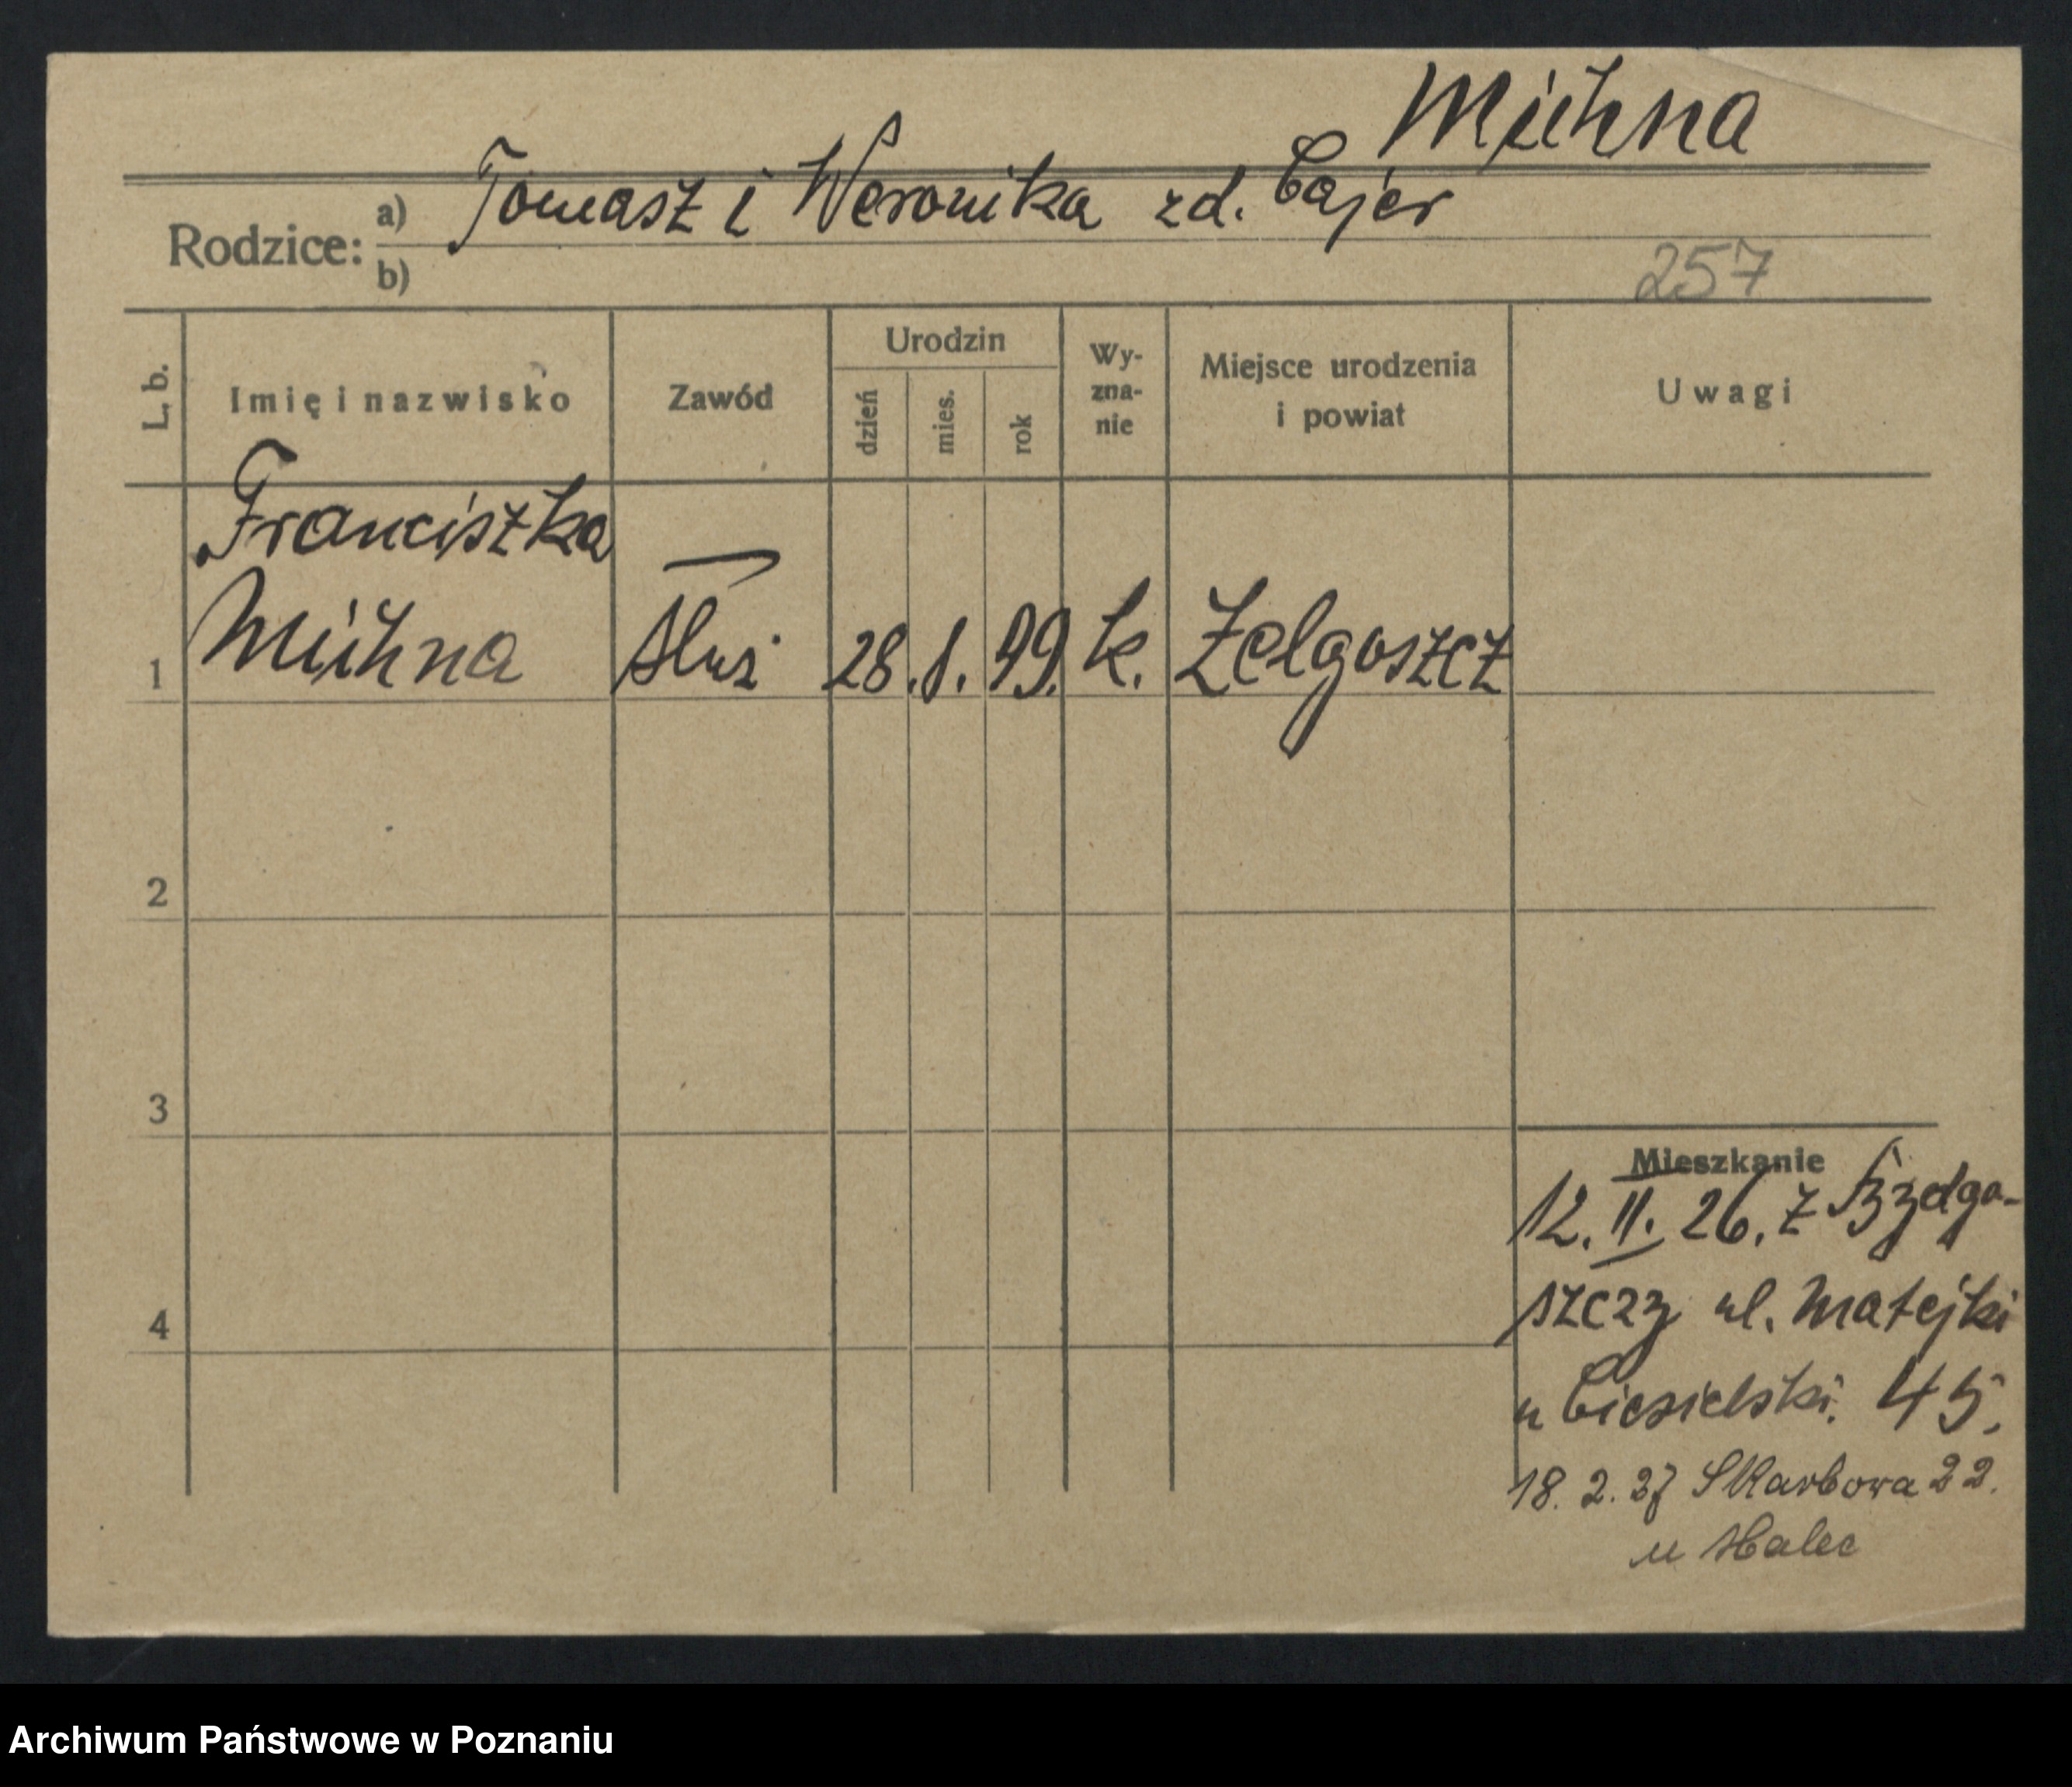 Michna
Rodzice: a) Tomasz i Weronika zd. Cajer
b)
257
L. b.
Imię i nazwisko
Zawód
Urodzin
dzień
mies.
rok
Wy-
zna-
nie
Miejsce urodzenia
i powiat
Uwagi
Franciszka
1 Michna służ 28. 1. 99. k. Zelgoszcz
2
3
4
Mieszkanie
12. II. 26. z Bydgo-
szczy ul. Matejki
u Ciesielski. 45.
18. 2. 27 Skarbowa 22.
u Halec
Archiwum Państwowe w Poznaniu